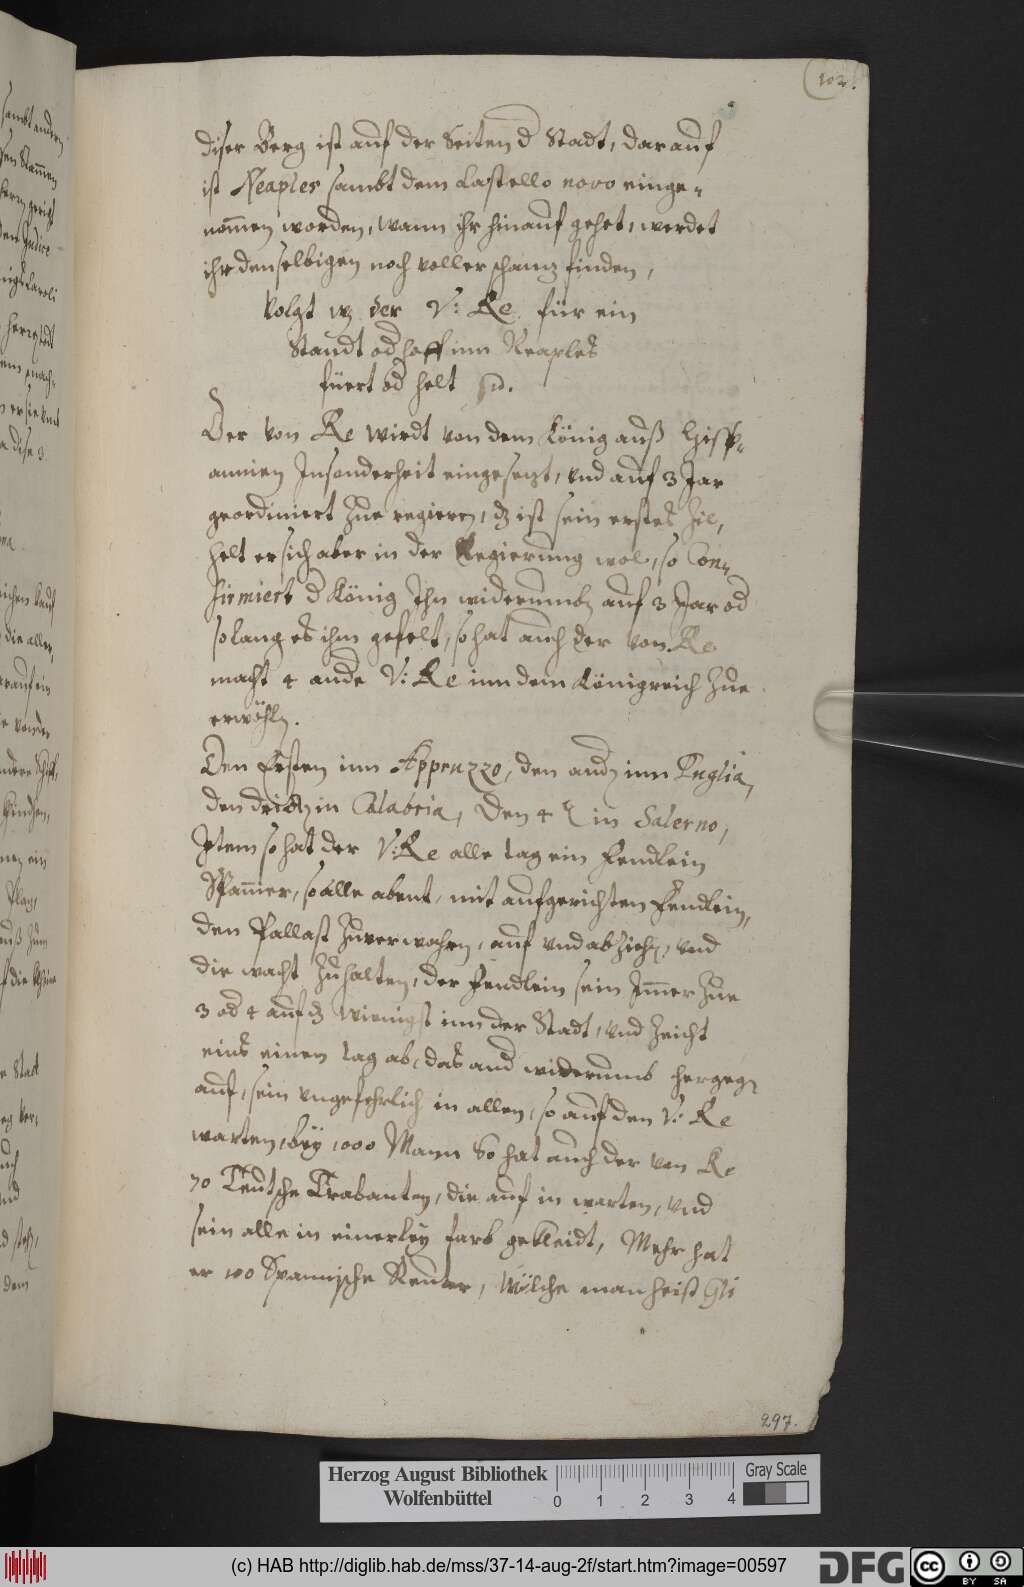 102.
diser Berg ist auf der Seiten d Stadt, darauf
ist Neaples sambt dem Castello novo einge-
nommen worden, wann ihr hinauf gehet, werdet
ihr denselbigen noch voller schantz finden,
Volgt wz der V: Re für ein
Standt od hoff inn Neaples
füert od helt
Der von Re wirdt von dem König auß Hisp-
annien Insonderheit eingesetzt, und auf 3 Jar
geordiniert Zue regieren, dz ist sein erstes Zil,
helt er sich aber in der Regierung wol, so Con-
firmiert d König Ihn widerumb auf 3 Jar od
so lang es ihm gefelt, so hat auch der von Re
macht 4 ande V: Re inn dem Königreich Zue
erwöhlen.
Den Ersten inn Appruzzo, den andn inn Puglia,
den dritn in Calabria, Den 4 in Salerno,
Item so hat der V: Re alle tag ein Fendlein
Spannier, so alle abent, mit aufgerichten Fendlein,
den Pallast Zuverwahren, auf und abZiehen, und
die wacht Zuhalten, der Fendlein sein Immer Zue
3 od 4 auf dz wienigst inn der Stadt, und Zeicht
eins einen tag ab, das and widerumb hergegen
auf, sein ungefehrlich in allen, so auf den V: Re
warten, bey 1000 Mann So hat auch der von Re
70 Teutsche Trabanten, die auf in warten, und
sein alle in einerley farb gekleidt, Mehr hat
er 100 Spannische Reuter, Wölche man heist Gli
297.
Herzog August Bibliothek
Wolfenbüttel
0 1 2 3 4
Gray Scale
(c) HAB http://diglib.hab.de/mss/37-14-aug-2f/start.htm?image=00597
DFG
cc BY SA